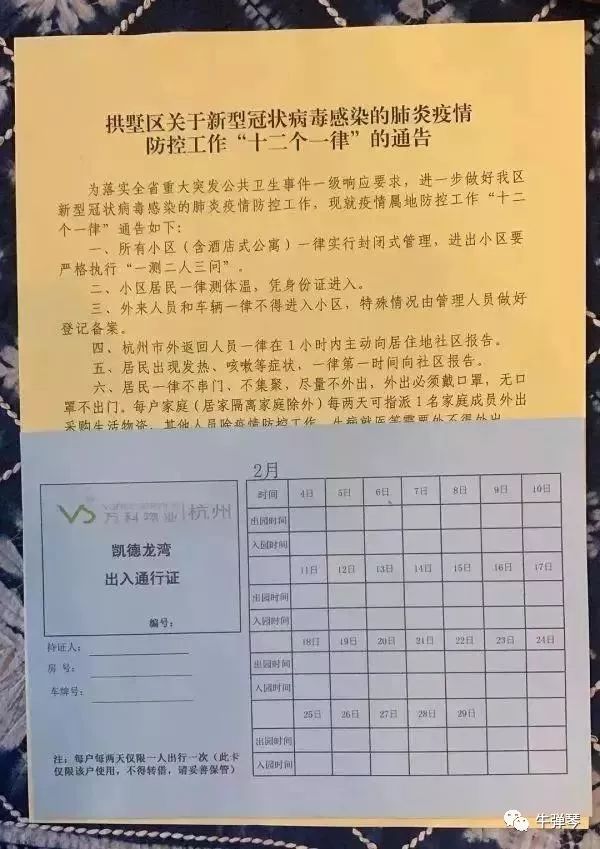 拱墅区关于新型冠状病毒感染的肺炎疫情
防控工作“十二个一律”的通告
为落实全省重大突发公共卫生事件一级响应要求，进一步做好我区
新型冠状病毒感染的肺炎疫情防控工作，现就疫情属地防控工作“十二
个一律”通告如下：
一、所有小区（含酒店式公寓）一律实行封闭式管理，进出小区要
严格执行“一测二人三问”。
二、小区居民一律测体温，凭身份证进入。
三、外来人员和车辆一律不得进入小区，特殊情况由管理人员做好
登记备案。
四、杭州市外返回人员一律在1小时内主动向居住地社区报告。
五、居民出现发热、咳嗽等症状，一律第一时间向社区报告。
六、居民一律不串门、不集聚，尽量不外出，外出必须戴口罩，无口
罩不出门。每户家庭（居家隔离家庭除外）每两天可指派1名家庭成员外出
采购生活物资，其他人员除疫情防控工作、生病就医等需要外不得外出
万科物业 杭州
凯德龙湾
出入通行证
编号：
持证人：
房 号：
车牌号：
注：每户每两天仅限一人出行一次（此卡
仅限该户使用，不得转借，请妥善保管）
2月
时间 4日 5日 6日 7日 8日 9日 10日
出园时间
入园时间
11日 12日 13日 14日 15日 16日 17日
出园时间
入园时间
18日 19日 20日 21日 22日 23日 24日
出园时间
入园时间
25日 26日 27日 28日 29日
出园时间
入园时间
牛弹琴